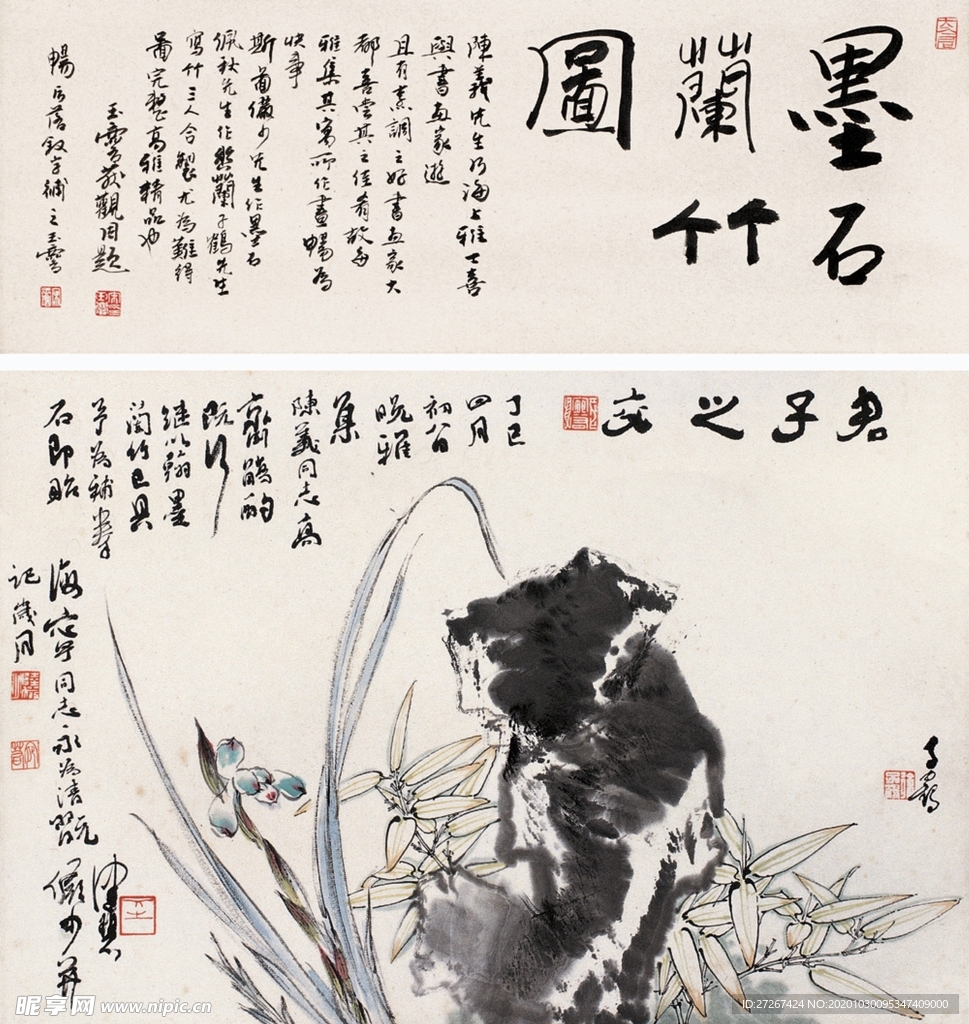 墨石
蘭竹
圖
陳義先生乃海上雅士喜
與書画家遊
且有素調之好書画家大
都喜雲其之佳肴故每
雅集其寓所作畫暢為
快事
斯圖儼少先生作墨石
佩秋先生作
蘭子鶴先生
寫竹三人合製尤為難得
圖完整高雅精品也
玉
觀因題
暢
字補之玉
君子之交
丁巳
四月
初
晚雅
集
陳義同志高
齋
酌
既
繼以翰墨
蘭竹已具
予為補拳
石即貽
海寧同志永為清翫
儼少并
記歲月
子鶴
昵享网 www.nipic.cn
ID:27267424 NO:20201030095347409000